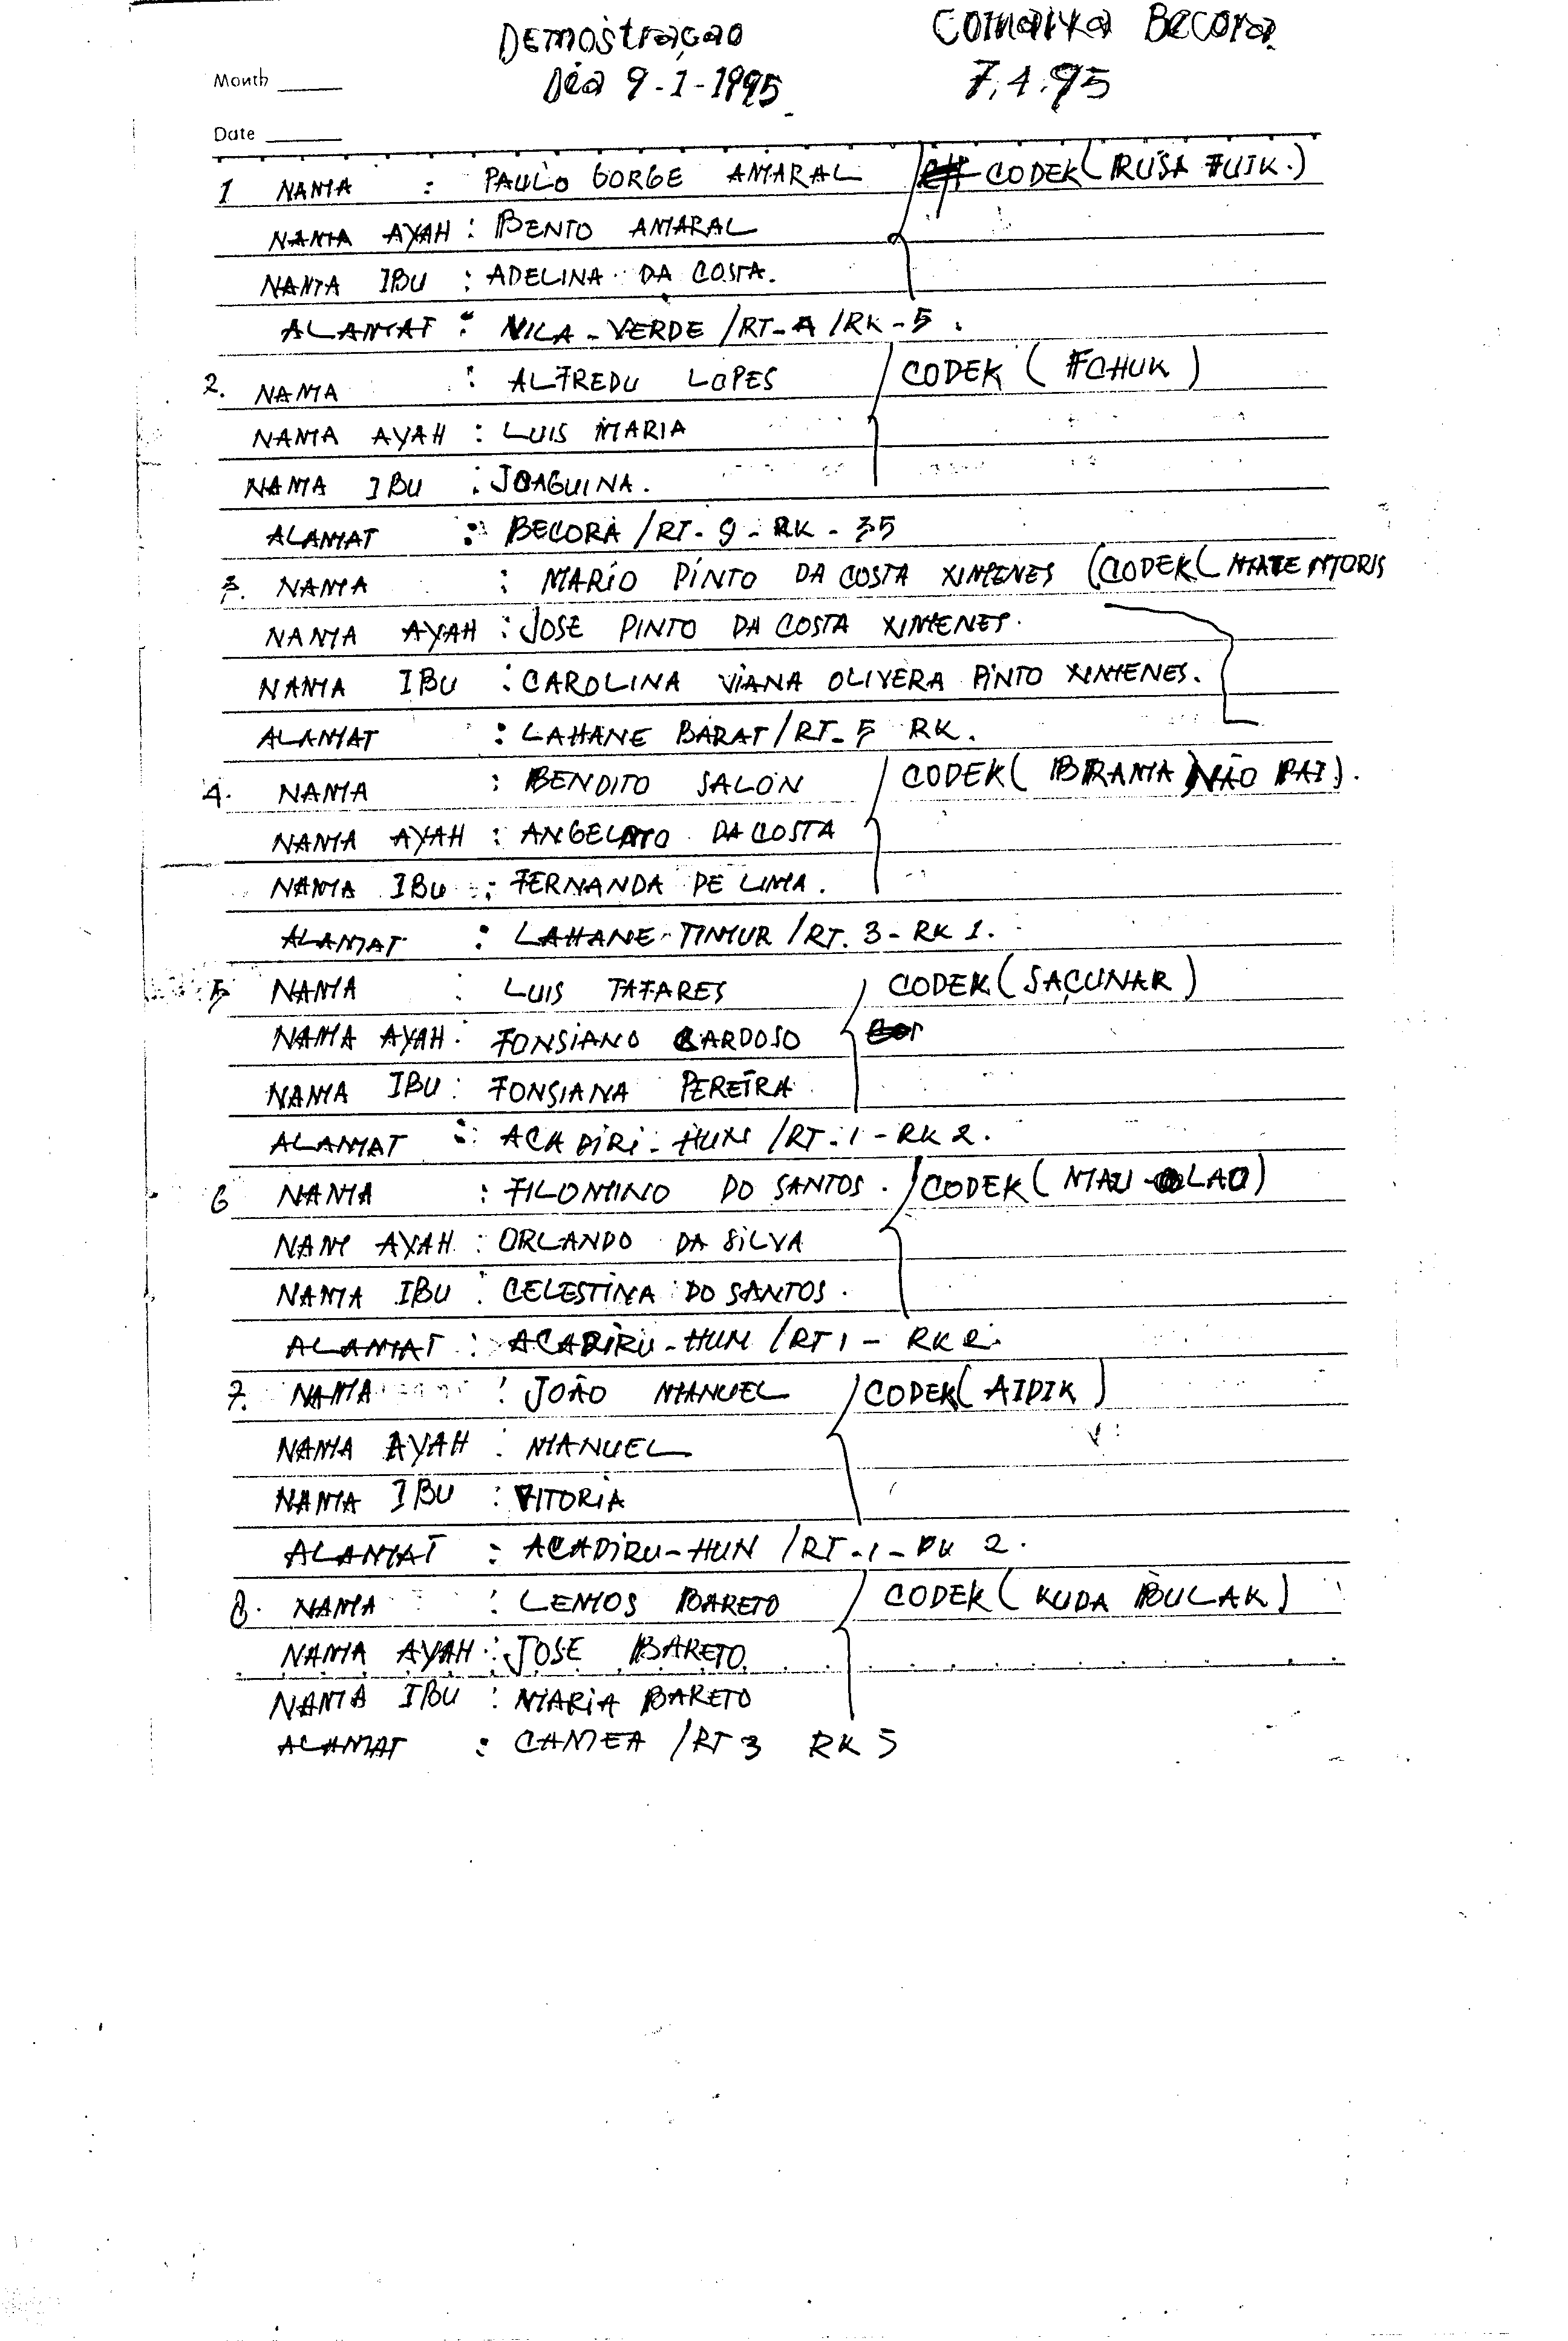 DEMOStraçao Comarka Becora
Dia 9-1-1995 7.1.95
Month
Date
1 NAMA : PAULO GORGE AMARAL CODEK (RUSA FUIK.)
NAMA AYAH : BENTO AMARAL
NAMA IBU : ADELINA DA COSTA.
ALAMAT : VILA-VERDE /RT-4 /RK-5.
2. NAMA : ALFREDU LOPES CODEK (FCHUK)
NAMA AYAH : LUIS MARIA
NAMA IBU : JOAGUINA.
ALAMAT : BECORA /RT-9-RK-35
3. NAMA : MARIO PINTO DA COSTA XIMENES (CODEK (MATE MORIS
NAMA AYAH : JOSE PINTO DA COSTA XIMENES.
NAMA IBU : CAROLINA VIANA OLIVERA PINTO XIMENES.
ALAMAT : LAHANE BARAT /RT-5 RK.
4. NAMA : BENDITO SALON CODEK (BRAMA NÃO PAI).
NAMA AYAH : DA COSTA
NAMA IBU : FERNANDA DE LIMA.
ALAMAT : LAHANE-TIMUR /RT. 3-RK 1.
5 NAMA : LUIS TAFARES CODEK (SAÇUNAR)
NAMA AYAH : FONSIANO CARDOSO
NAMA IBU : FONSIANA PEREIRA
ALAMAT : ACADIRI-HUN /RT-1-RK 2.
6 NAMA : FILOMINO DO SANTOS. CODEK (MAU-LAO)
NAM AYAH : ORLANDO DA SILVA
NAMA IBU : CELESTINA DO SANTOS.
ALAMAT : ACADIRU-HUN /RT 1 - RK 2.
7. NAMA : JOÃO MANUEL CODEK (AIDIK)
NAMA AYAH : MANUEL
NAMA IBU : VITORIA
ALAMAT : ACADIRU-HUN /RT-1-RK 2.
8. NAMA : LEMOS BARETO CODEK (KUDA BULAK)
NAMA AYAH : JOSE BARETO
NAMA IBU : MARIA BARETO
ALAMAT : CAMEA /RT 3 RK 5